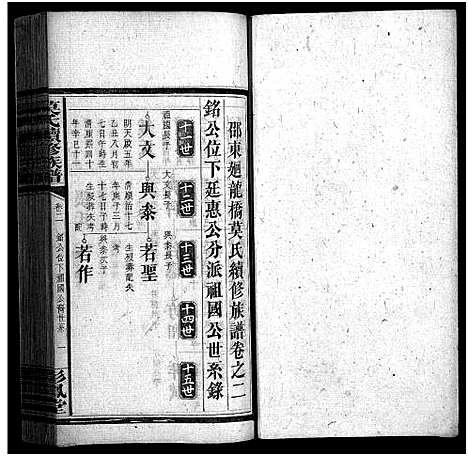 邵東廻龍橋莫氏續修族譜卷之二
銘公位下廷惠公分派祖國公世系錄
十一世
十二世
十三世
十四世
十五世
祖國長子
大文
明天啟五年
乙丑八月官
七日午時生
清康熙四十
年辛巳十一
大文長子
興泰
清順治十七
年庚子二月
十七日子時
生
興泰長子
若聖
生
興泰次子
若作
莫氏續修族譜
卷二
銘公位下祖國公裔世系
一
彩鳳堂